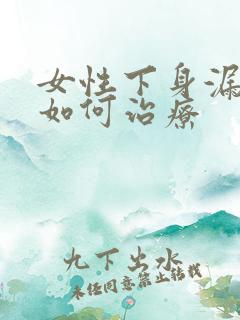 女性下身漏
如何治療
九下出水
未经同意禁止转载